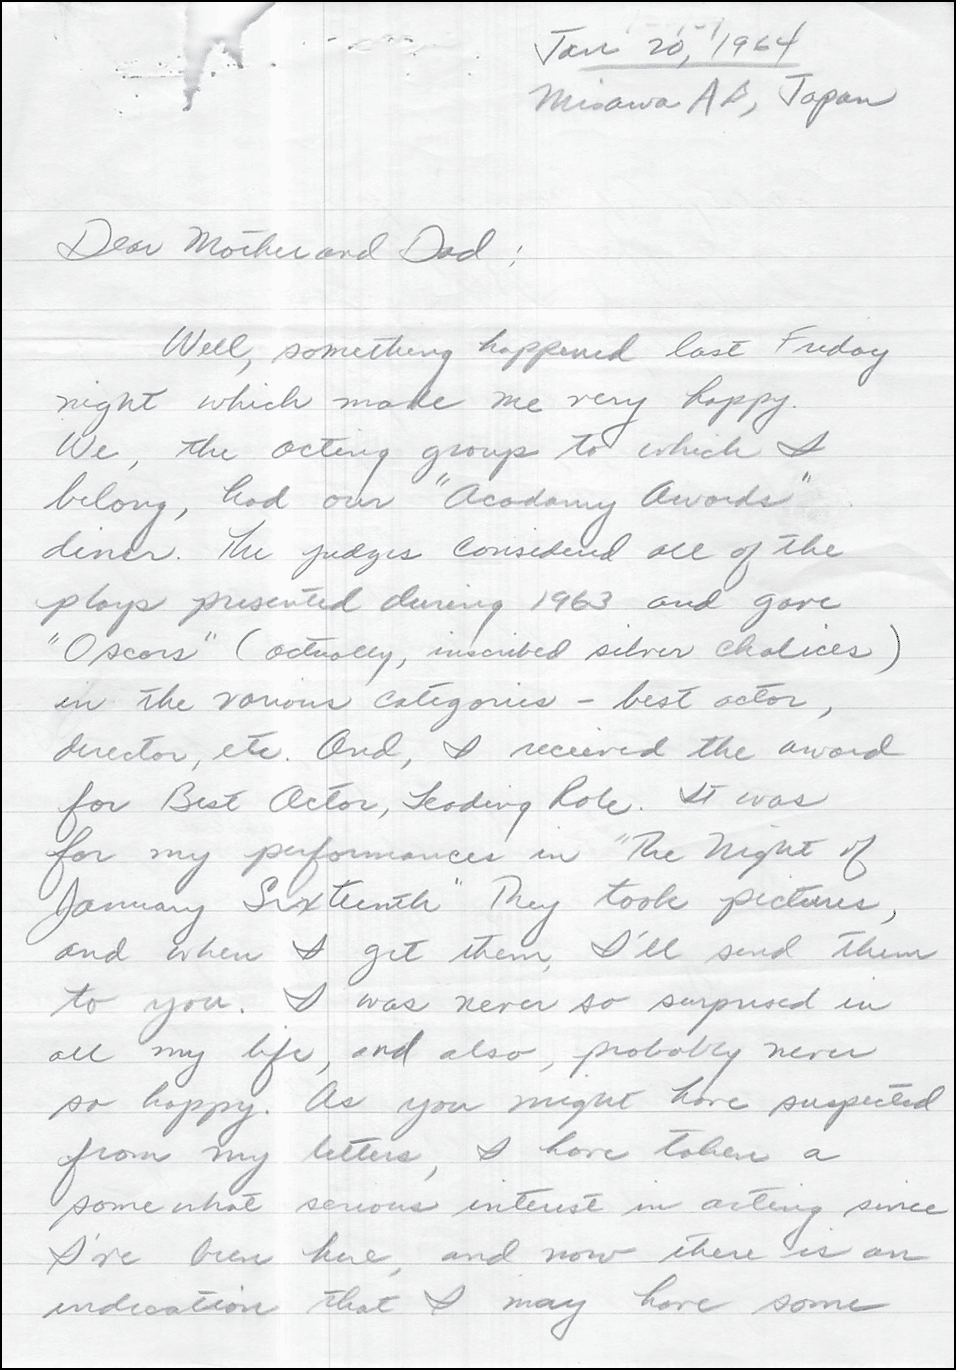 Jan 20, 1964
Misawa AB, Japan
Dear Mother and Dad;
Well, something happened last Friday
night which made me very happy.
We, the acting group to which I
belong, had our "Acadamy Awards"
diner. The judges considered all of the
plays presented during 1963 and gave
"Oscars" (actually, inscribed silver chalices)
in the various categories – best actor,
director, etc. And, I received the award
for Best Actor, Leading Role. It was
for my performances in "The Night of
January Sixteenth" They took pictures,
and when I get them, I'll send them
to you. I was never so surprised in
all my life, and also, probably never
so happy. As you might have suspected
from my letters, I have taken a
somewhat serious interest in acting since
I've been here, and now there is an
indication that I may have some